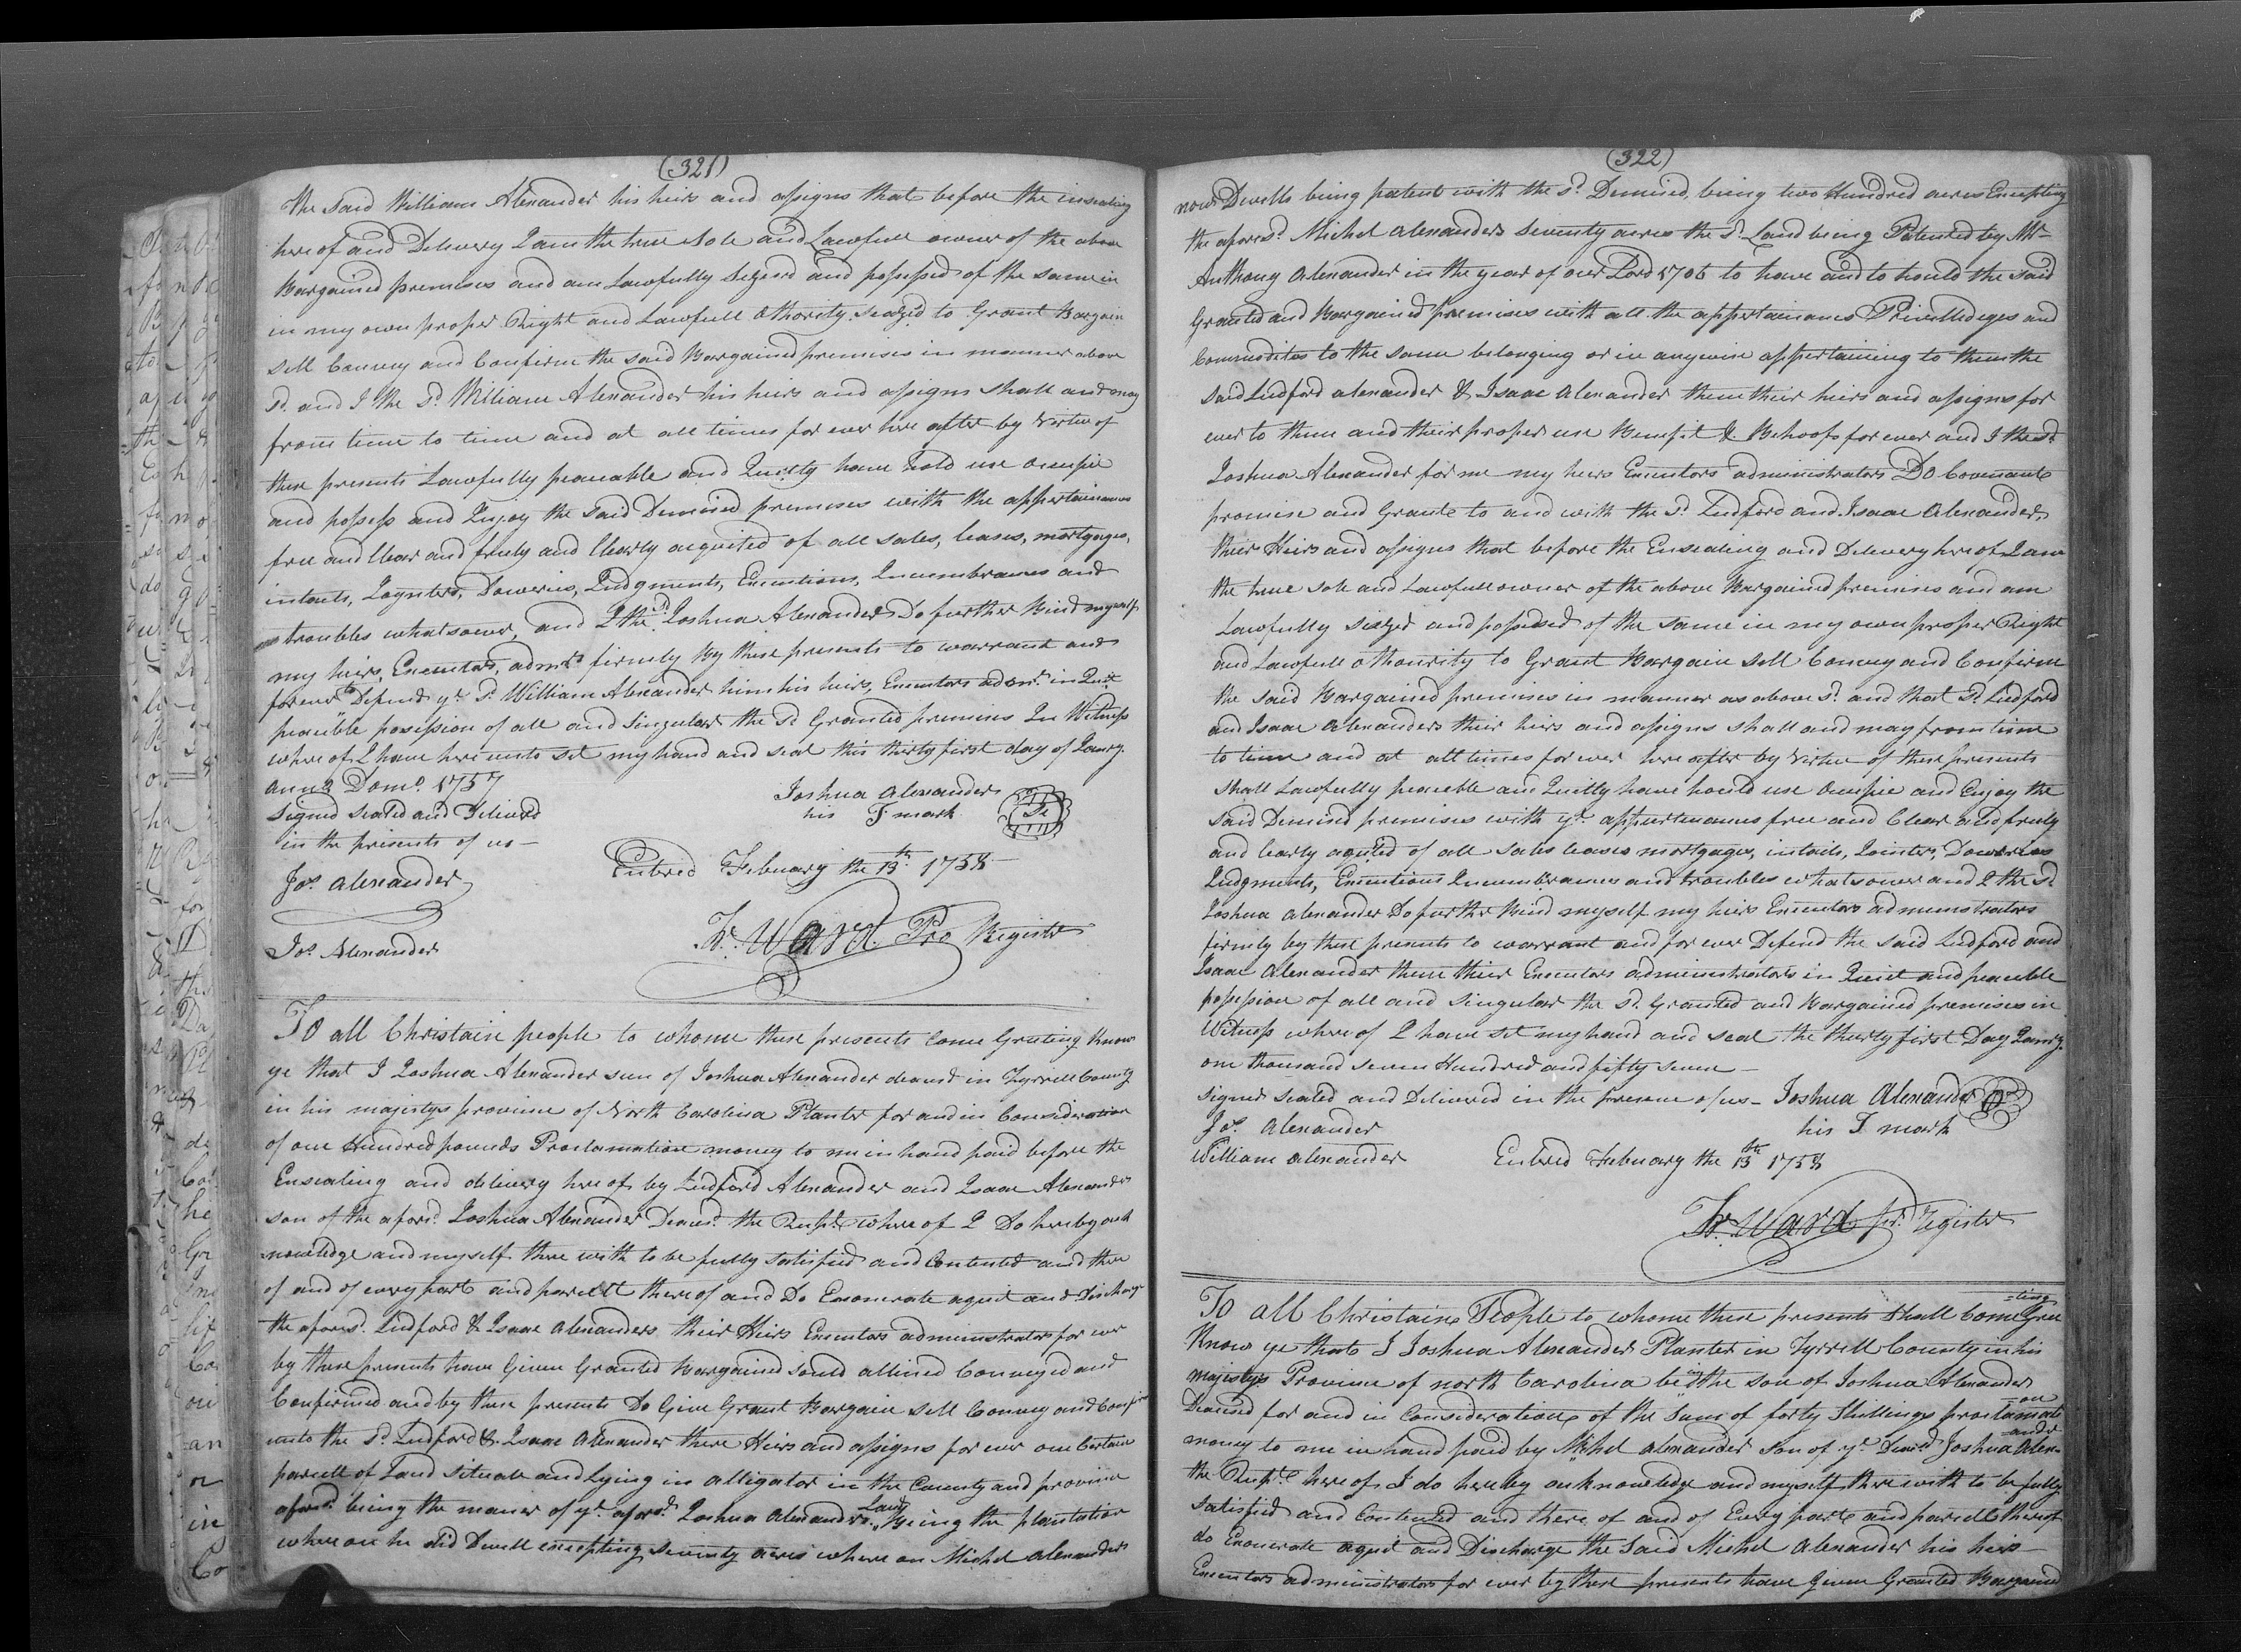 (321)
the said William Alexander his heirs and assigns that before the insealing
hereof and Delivery I am the true sole and Lawfull owner of the above
Bargained premises and am Lawfully seized and possessed of the same in
in my own proper Right and Lawfull Athority seazed to Grant Bargain
sell Convey and Confirm the said Bargained premises in manner above
sd. and I the sd. William Alexander his heirs and assigns shall and may
from time to time and at all times for ever here after by virtue of
these presents Lawfully peaceable and Quietly have hold use occupie
and possess and Enjoy the said Demised premises with the appertainances
free and Clear and freely and Clearly acqueted of all sales, leases, mortgages,
intails, Joynters, Doweries, Judgments, Executions, Incumbrances and
troubles whatsoever, and I the sd. Joshua Alexander Do further Bind myself
my heirs, Executors, admrs. firmly By these presents to warrant and
forever to Defend ye. sd. William Alexander him his heirs, Executors admrs. in Quiet
peaceble possession of all and singular the sd. Granted premises In Witness
where of I have here unto set my hand and seal this thirty first day of Janry.
anno Domo. 1757
Joshua Alexander
Signed sealed and Delivered
his T mark
in the presents of us —
Entred Febuary the 13th. 1758 —
Jos. Alexander
Jos. Alexander
Tr. Ward. Pro Register
To all Christain people to whome these presents Come Greeting Know
ye that I Joshua Alexander sun of Joshua Alexander deacesd in Tyrrell County
in his majestys province of North Carolina Planter for and in Consideration
of one Hundred pounds Proclamation money to me in hand paid before the
Ensealing and delivery here of by Ludford Alexander and Isaac Alexander
son of the aforsd. Joshua Alexander Deacesd. the Recpt. where of I Do hereby ack
nowledge and myself there with to be fully satisfied and Contented and there
of and of every part and parcell there of and Do Exonerate aquit and Discharge
the aforesd. Ludford & Isaac Alexanders their Heirs Executors administrators for ever
by these presents have Given Granted Bargained sould alined Conveyed and
Confirmed and by these presents Do Give Grant Bargain sell Convey and Confirm
unto the sd. Ludford & Isaac Alexander there Heirs and assigns for ever one Certain
parcell of Land Situate and Lying in alligator in the County and province
aforsd. being the maner of ye. aforsd. Joshua Alexanders Land, Being the plantation
where on he did Dwell excepting seventy acres where on Michel Alexander
(322)
now Dwells being patent with the sd. Demised, being two Hundred acres Excepting
the aforesd. Michel Alexanders seventy acres the sd. Land being Patented by Mr.
Anthony Alexander in the year of our Lord 1706 to have and to hould the said
Granted and Bargained premises with all the appertainances Privilledeges and
Commodites to the same belonging or in anywise appertaining to them the
said Ludford alexander & Isaac Alexander them their heirs and assigns for
ever to them and their proper use Benefit & Behoofs for ever and I the sd.
Joshua Alexander for me my heirs Executors administrators Do Covenant
promise and Grante to and with the sd. Ludford and Isaac Alexander,
their Heirs and assigns that before the Ensealing and Delevery here of I am
the true sole and Lawfull owner of the above Bargained premises and am
Lawfully siezed and possesed of the same in my own proper Right
and Lawfull othourity to Grant Bargain sell Convey and Confirm
the said Bargained premises in manner as above sd. and that sd. Ludford
and Isaac Alexanders their heirs and assigns shall and may from time
to time and at all times for ever here after by virtue of these presents
shall Lawfully peaceble and Quitly have hould use Occupie and Enjoy the
said Demised premises with ye. appurtenances free and Clear and freely
and Cearly aquited of all sales leases mortgages, intails, Jointer, Doweries
Judgments, Executions Incumbrances and troubles whatsoever and I the sd.
Joshua Alexander Do further Bind myself my heirs Executors administrators
firmly by these presents to warrant and for ever Defend the said Ludford and
Isaac Alexander them their Executors administrators in Quiet and peaceble
possession of all and singular the sd. Granted and Bargained premises in
Witness where of I have set my hand and seal the thirty first Day Janry.
one thousand seven Hundred and fifty seven —
Signed sealed and Delivered in the presence of us — Joshua Alexander
Jos. Alexander his T mark
William alexander Entred Febuary the 13th 1758
Tr. Ward Jr. Register
To all Christaine People to whome these presents Shall Come Gree
-ting
Know ye that I Joshua Alexander Planter in Tyrrell County in his
majestys Province of north Carolina being the son of Joshua Alexander
Deacesed for and in Consideration of the Sum of forty Shillings proclamati
-on
money to me in hand paid by Michel Alexander son of ye. Deacesd. Joshua Alex-
-ander
the Recpt. here of I do hereby acknowledge and myself there with to be fully
satisfied and Contented and there of and of Every parte and parcell thereof
do Exonerate aquit and Discharge the said Michel Alexander his heirs —
Executors administrators for ever by these presents have Given Granted Bargained